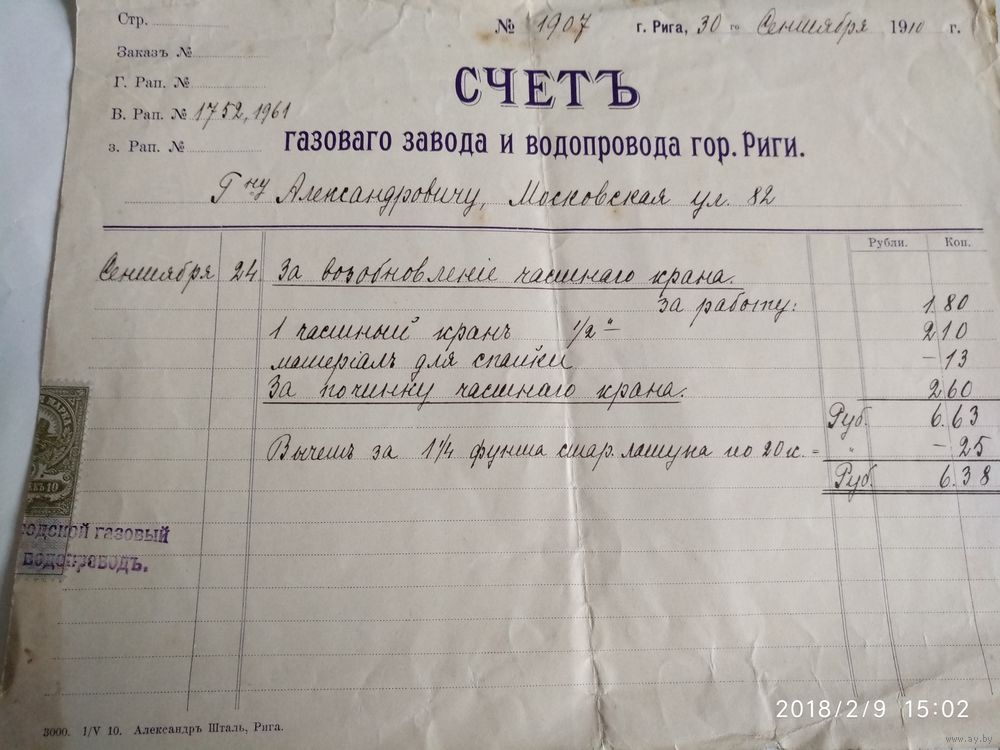 Стр.
№ 1907 г. Рига, 30 го Сентября 1910 г.
Заказъ №
Г. Рап. №
СЧЕТЪ
В. Рап. № 1752, 1961
з. Рап. №
газоваго завода и водопровода гор. Риги.
Гну Александровичу, Московская ул. 82
Рубли. Коп.
Сентября 24 За возобновленіе частнаго крана.
за работу: 1 80
1 частный кранъ 1/2" 2 10
матеріалъ для спайки – 13
За починку частнаго крана. 2 60
Руб. 6.63
Вычетъ за 1 1/4 фунта стар. латуна по 20 к. = " – 25
Руб. 6.38
МАРКА
10
одской газовый
водопроводъ.
3000. 1/V 10. Александръ Шталь, Рига.
2018/2/9 15:02
www.ay.by